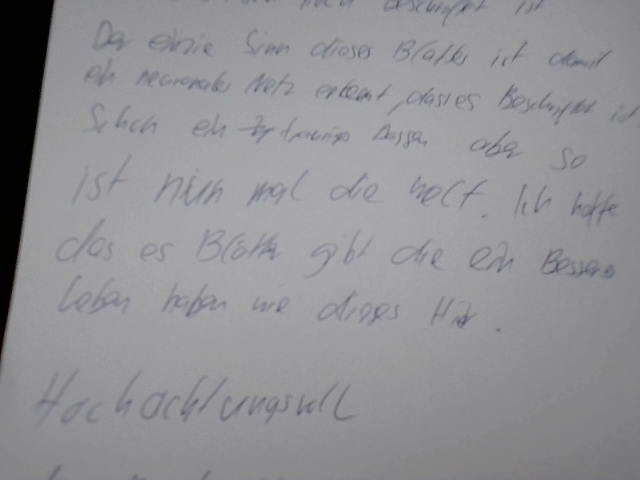 noch beschriftet ist
Der einzie Sinn dieses Blattes ist damit
ein neuronales Netz erkennt, dass es Beschriftet ist
Schon ein trauriges Dasein aber so
ist nun mal die Welt. Ich hoffe
das es Blätter gibt die ein Besseres
leben haben wie dieses Hier.
Hochachtungsvoll